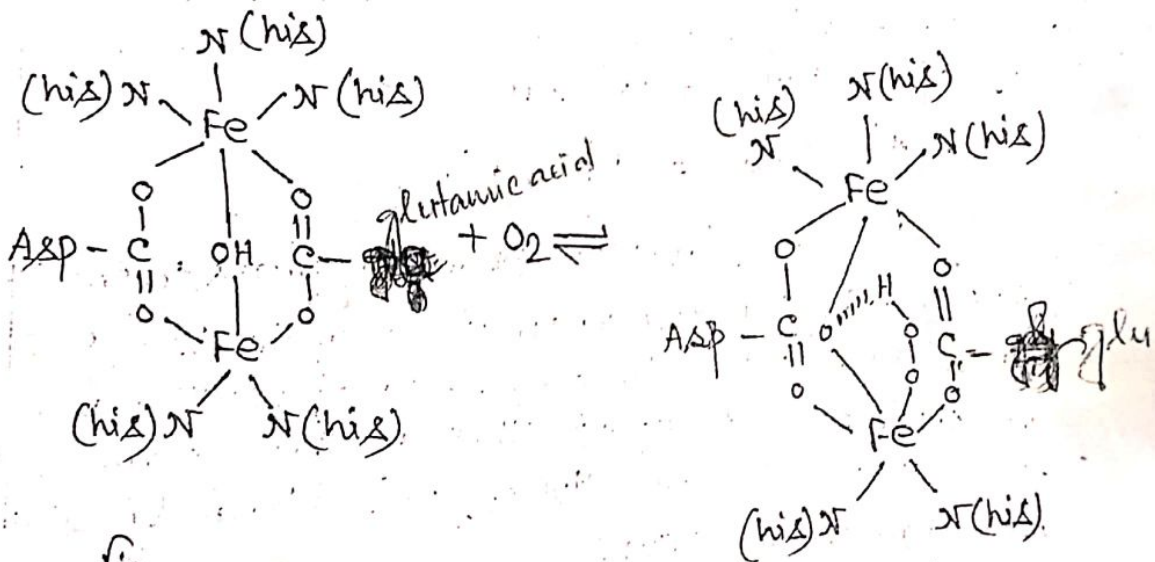 N(his)
(his)N N(his)
Fe
O O
Asp - C OH C - glutamic acid + O2 ⇌
O O
Fe
(his)N N(his)
N(his)
(his)N N(his)
Fe
O O
H
Asp - C O O C - glu
O O O
Fe
(his)N N(his)